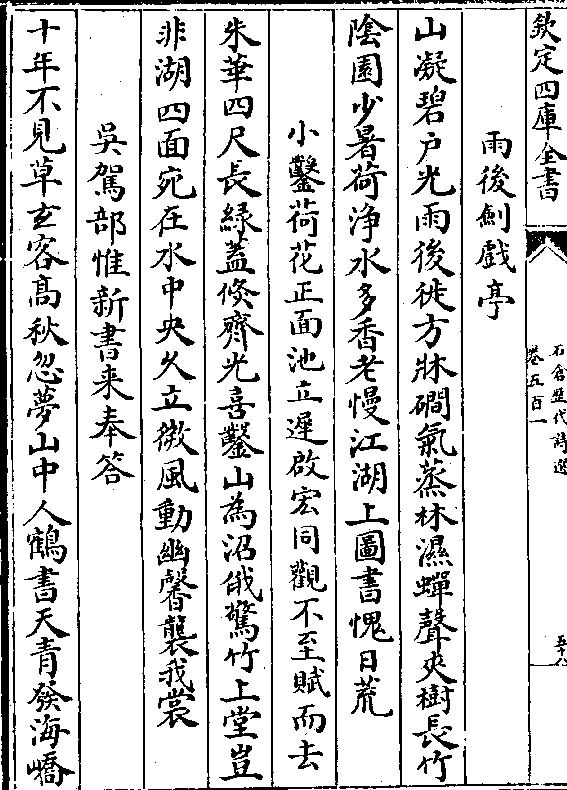 欽定四庫全書
石倉歷代詩選
卷五百一
雨後劍戲亭
山凝碧戶光雨後徙方牀磵氣蒸林濕蟬聲夾樹長竹
陰園少暑荷浄水多香老慢江湖上圖書愧日荒
小鑿荷花正面池立遲啟宏同觀不至賦而去
朱華四尺長緑蓋倐齊光喜鑿山為沼俄驚竹上堂豈
非湖四面宛在水中央久立微風動幽馨襲我裳
吳駕部惟新書来奉答
十年不見草玄客高秋忽夢山中人鶴書天青發海嶠